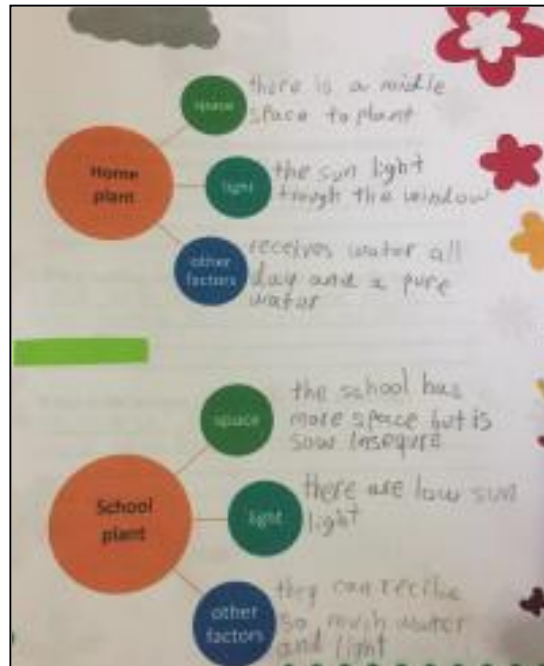 Home
plant
space
there is a midle
space to plant
light
the sun light
trough the window
other
factors
receives water all
day and a pure
water
School
plant
space
the school has
more space but is
sow insequre
light
there are low sun
light
other
factors
they can recilie
so much water
and light